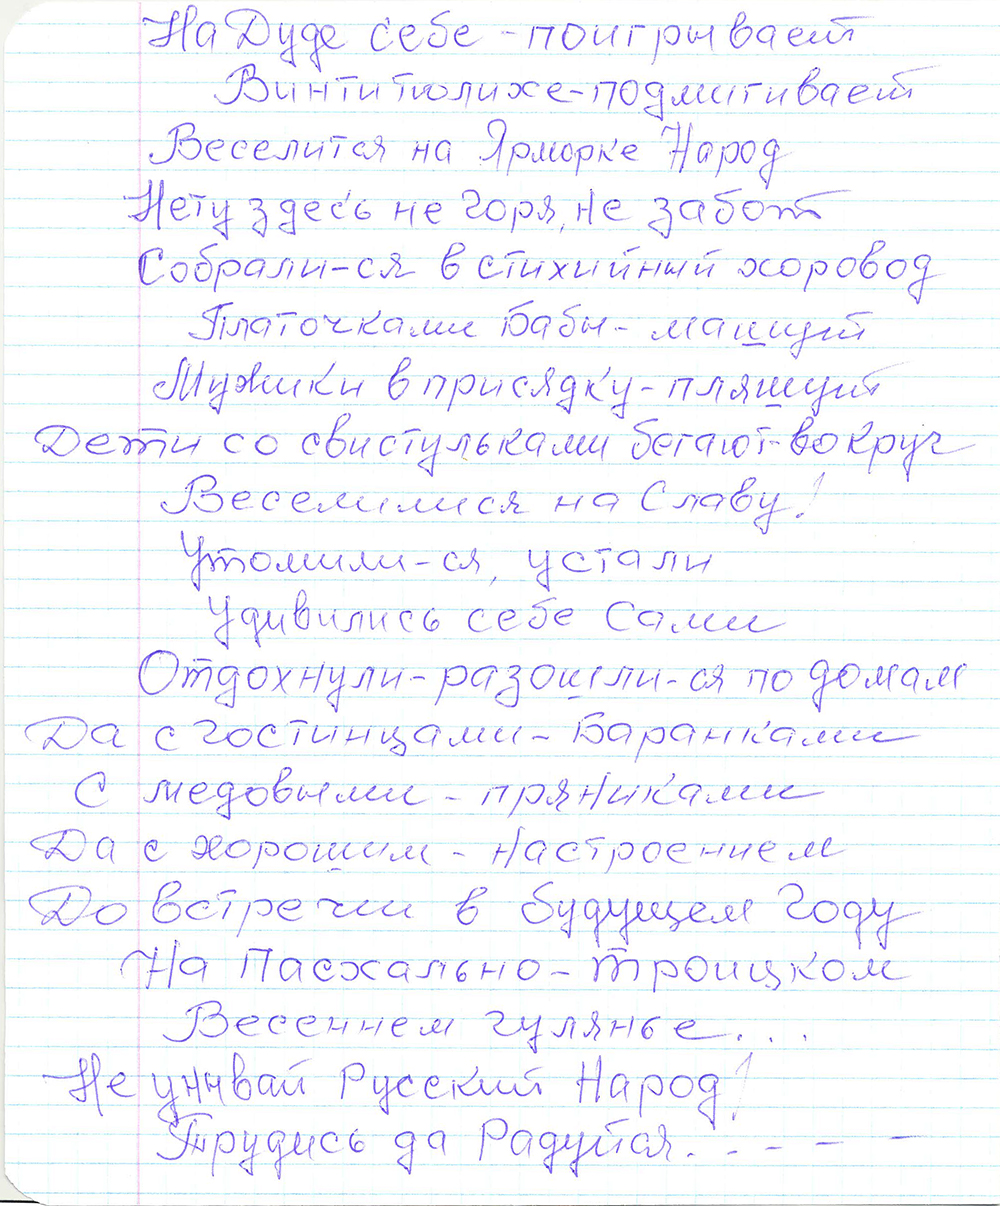 На Дуде себе - поигрывает
Винтитюлихе - подмигивает
Веселится на Ярморке Народ
Нету здесь не горя, не забот
Собрали-ся в стихийный хоровод
Платочками Бабы - машут
Мужики в присядку - пляшут
Дети со свистульками бегают - вокруг
Веселилися на Славу!
Утомили-ся, устали
Удивились себе Сами
Отдохнули - разошли-ся по домам
Да с гостинцами - Баранками
С медовыми - пряниками
Да с хорошим - настроением
До встречи в будущем Году
На Пасхально - троицком
Весеннем гулянье...
Не унывай Русский Народ!
Трудись да Радуйся. - - - -